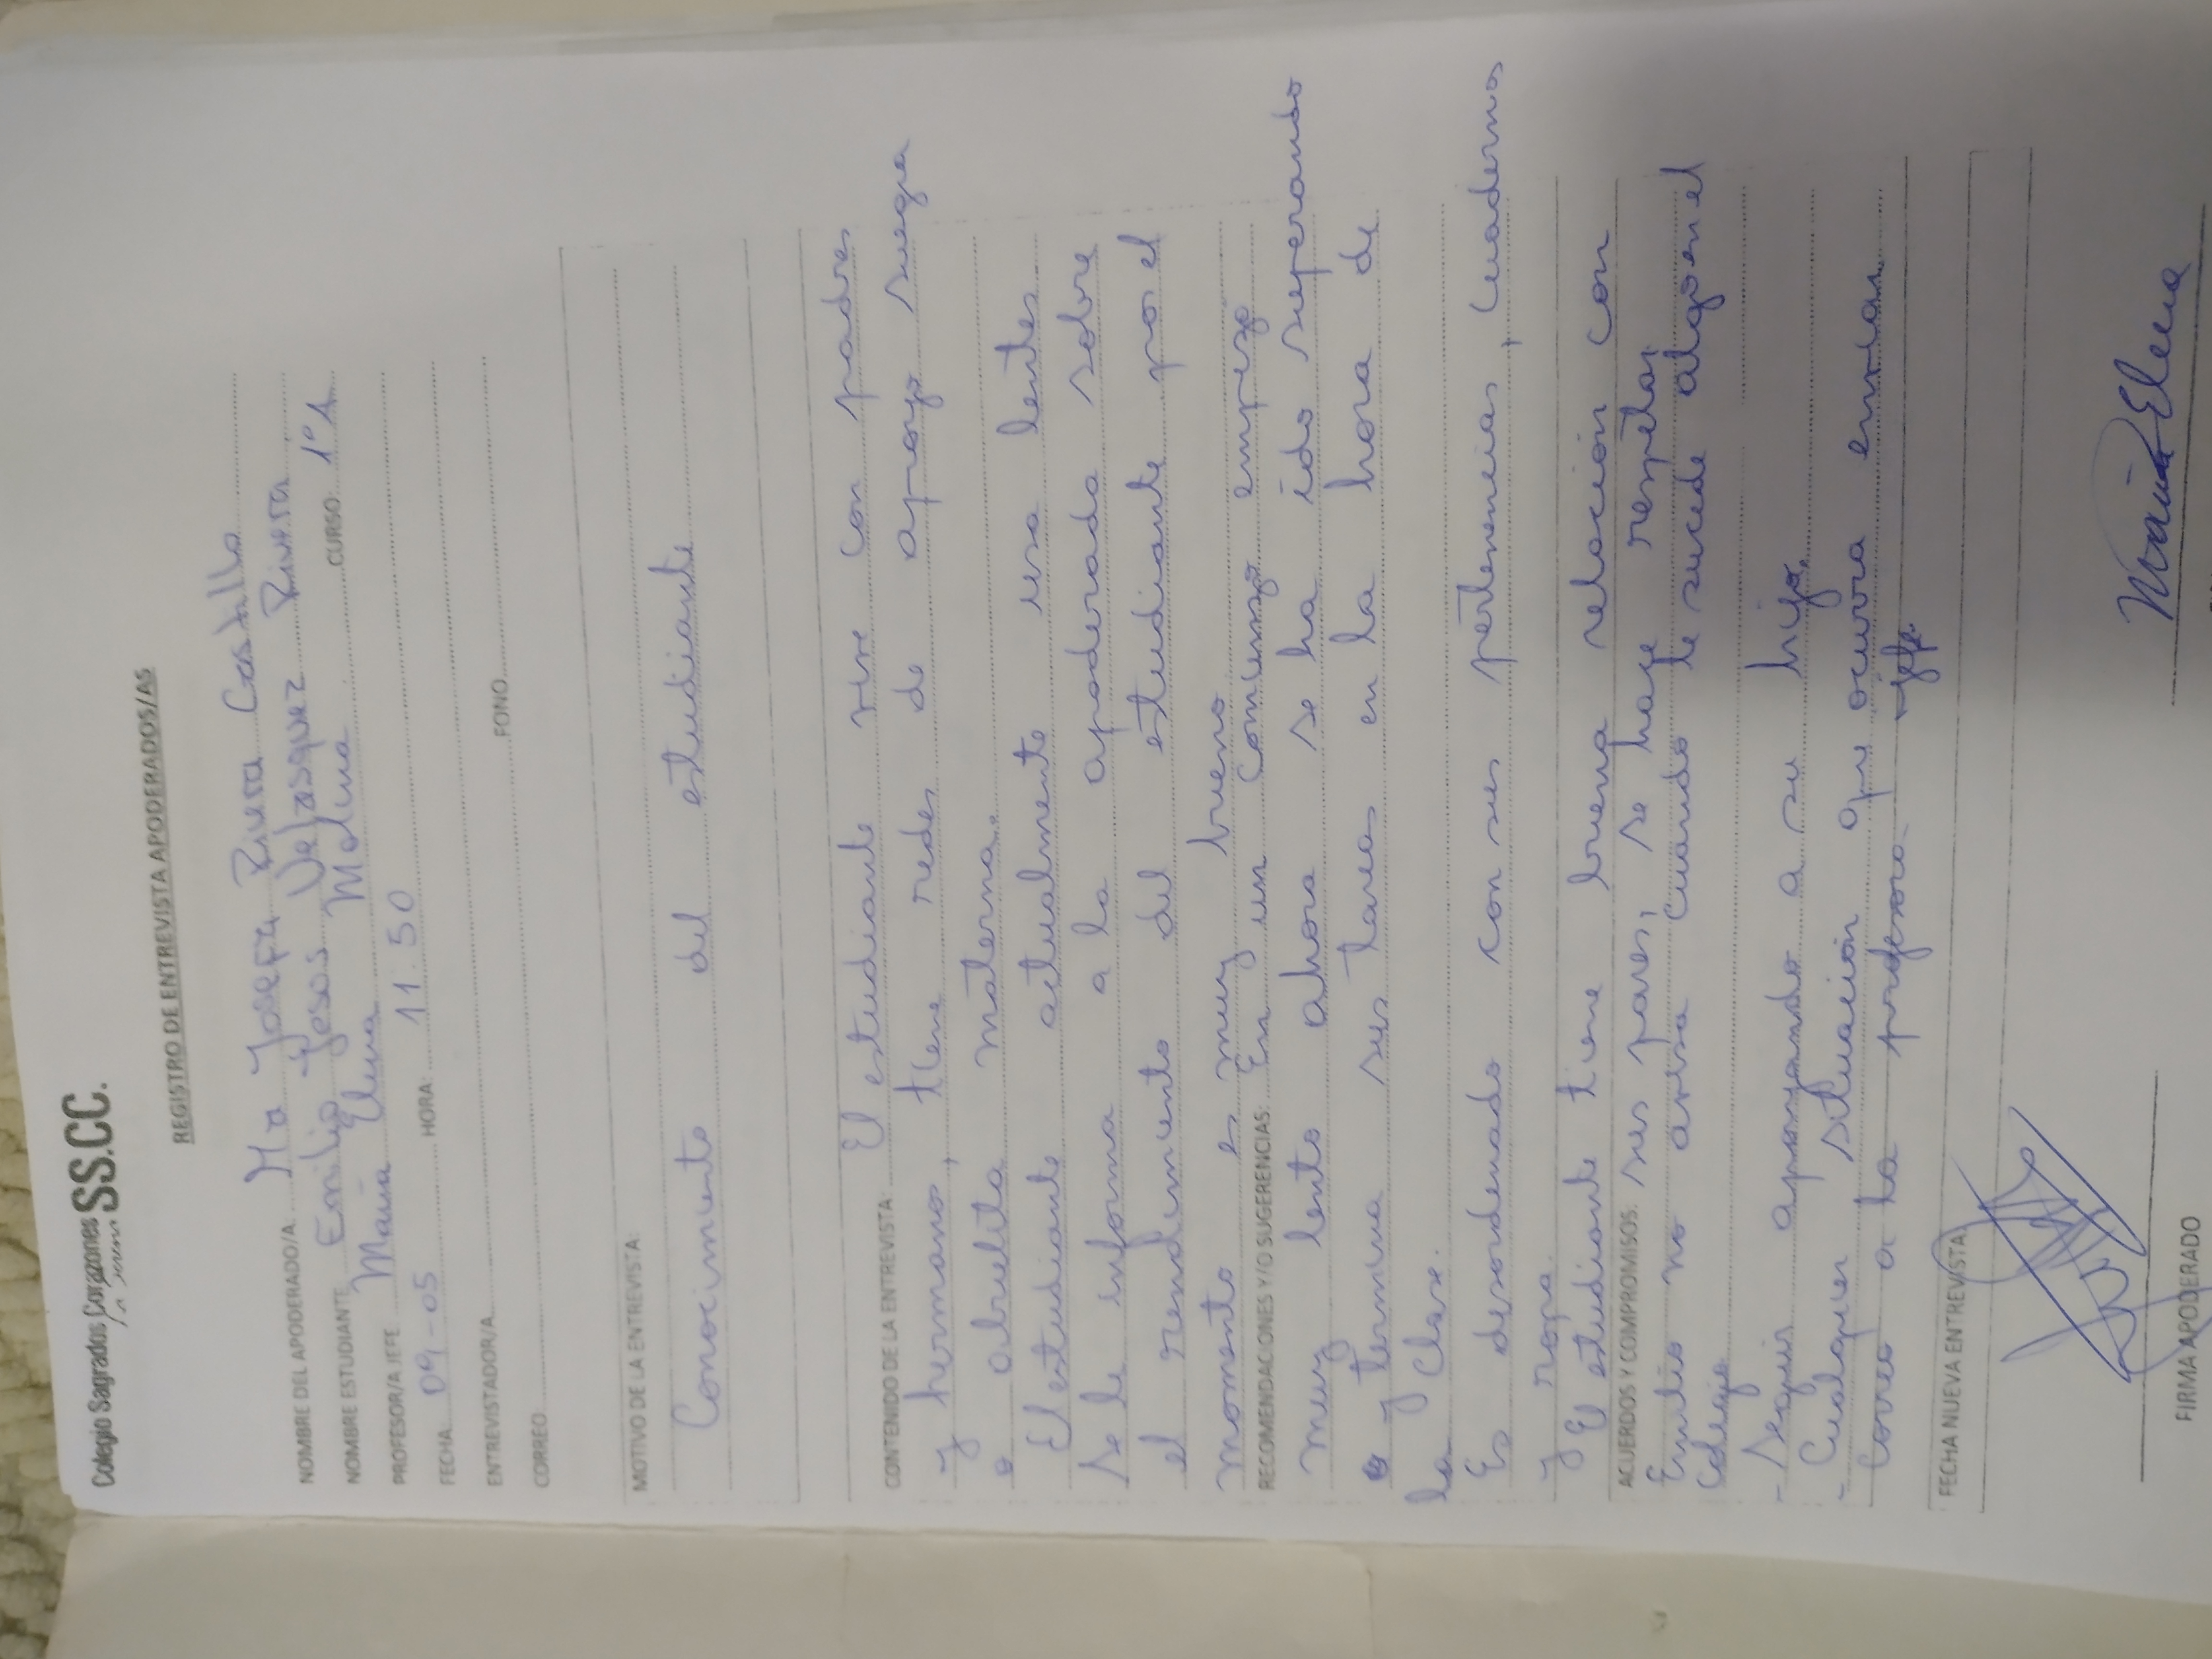 Colegio Sagrados Corazones SS.CC.
REGISTRO DE ENTREVISTA APODERADOS/AS
NOMBRE DEL APODERADO/A: Ma Josefa Rivera Castillo
NOMBRE ESTUDIANTE Emilio Jesos Velasquez Rivera
PROFESOR/A JEFE María Elena Molina CURSO 1°A
FECHA 09-05 HORA: 11:50
ENTREVISTADOR/A
CORREO FONO
MOTIVO DE LA ENTREVISTA:
Conocimiento del estudiante
CONTENIDO DE LA ENTREVISTA: El estudiante vive con padres
y hermano, tiene redes de apoyo suegra
o abuelita materna.
El estudiante actualmente usa lentes
Se le informa a la apoderada sobre
el rendimiento del estudiante por el
momento es muy bueno
RECOMENDACIONES Y/O SUGERENCIAS: En un comienzo empezó
muy lento ahora se ha ido superando
y termina sus tareas en la hora de
la clase.
Es desordenado con sus pertenencias, cuadernos
y ropa.
El estudiante tiene buena relación con
ACUERDOS Y COMPROMISOS: sus pares, se hace respetar,
Emilio no avisa cuando le sucede algo en el
colegio
- Seguir apoyando a su hijo.
- Cualquier situación que ocurra enviar
correo a la profesora jefe.
FECHA NUEVA ENTREVISTA:
María Elena
FIRMA APODERADO